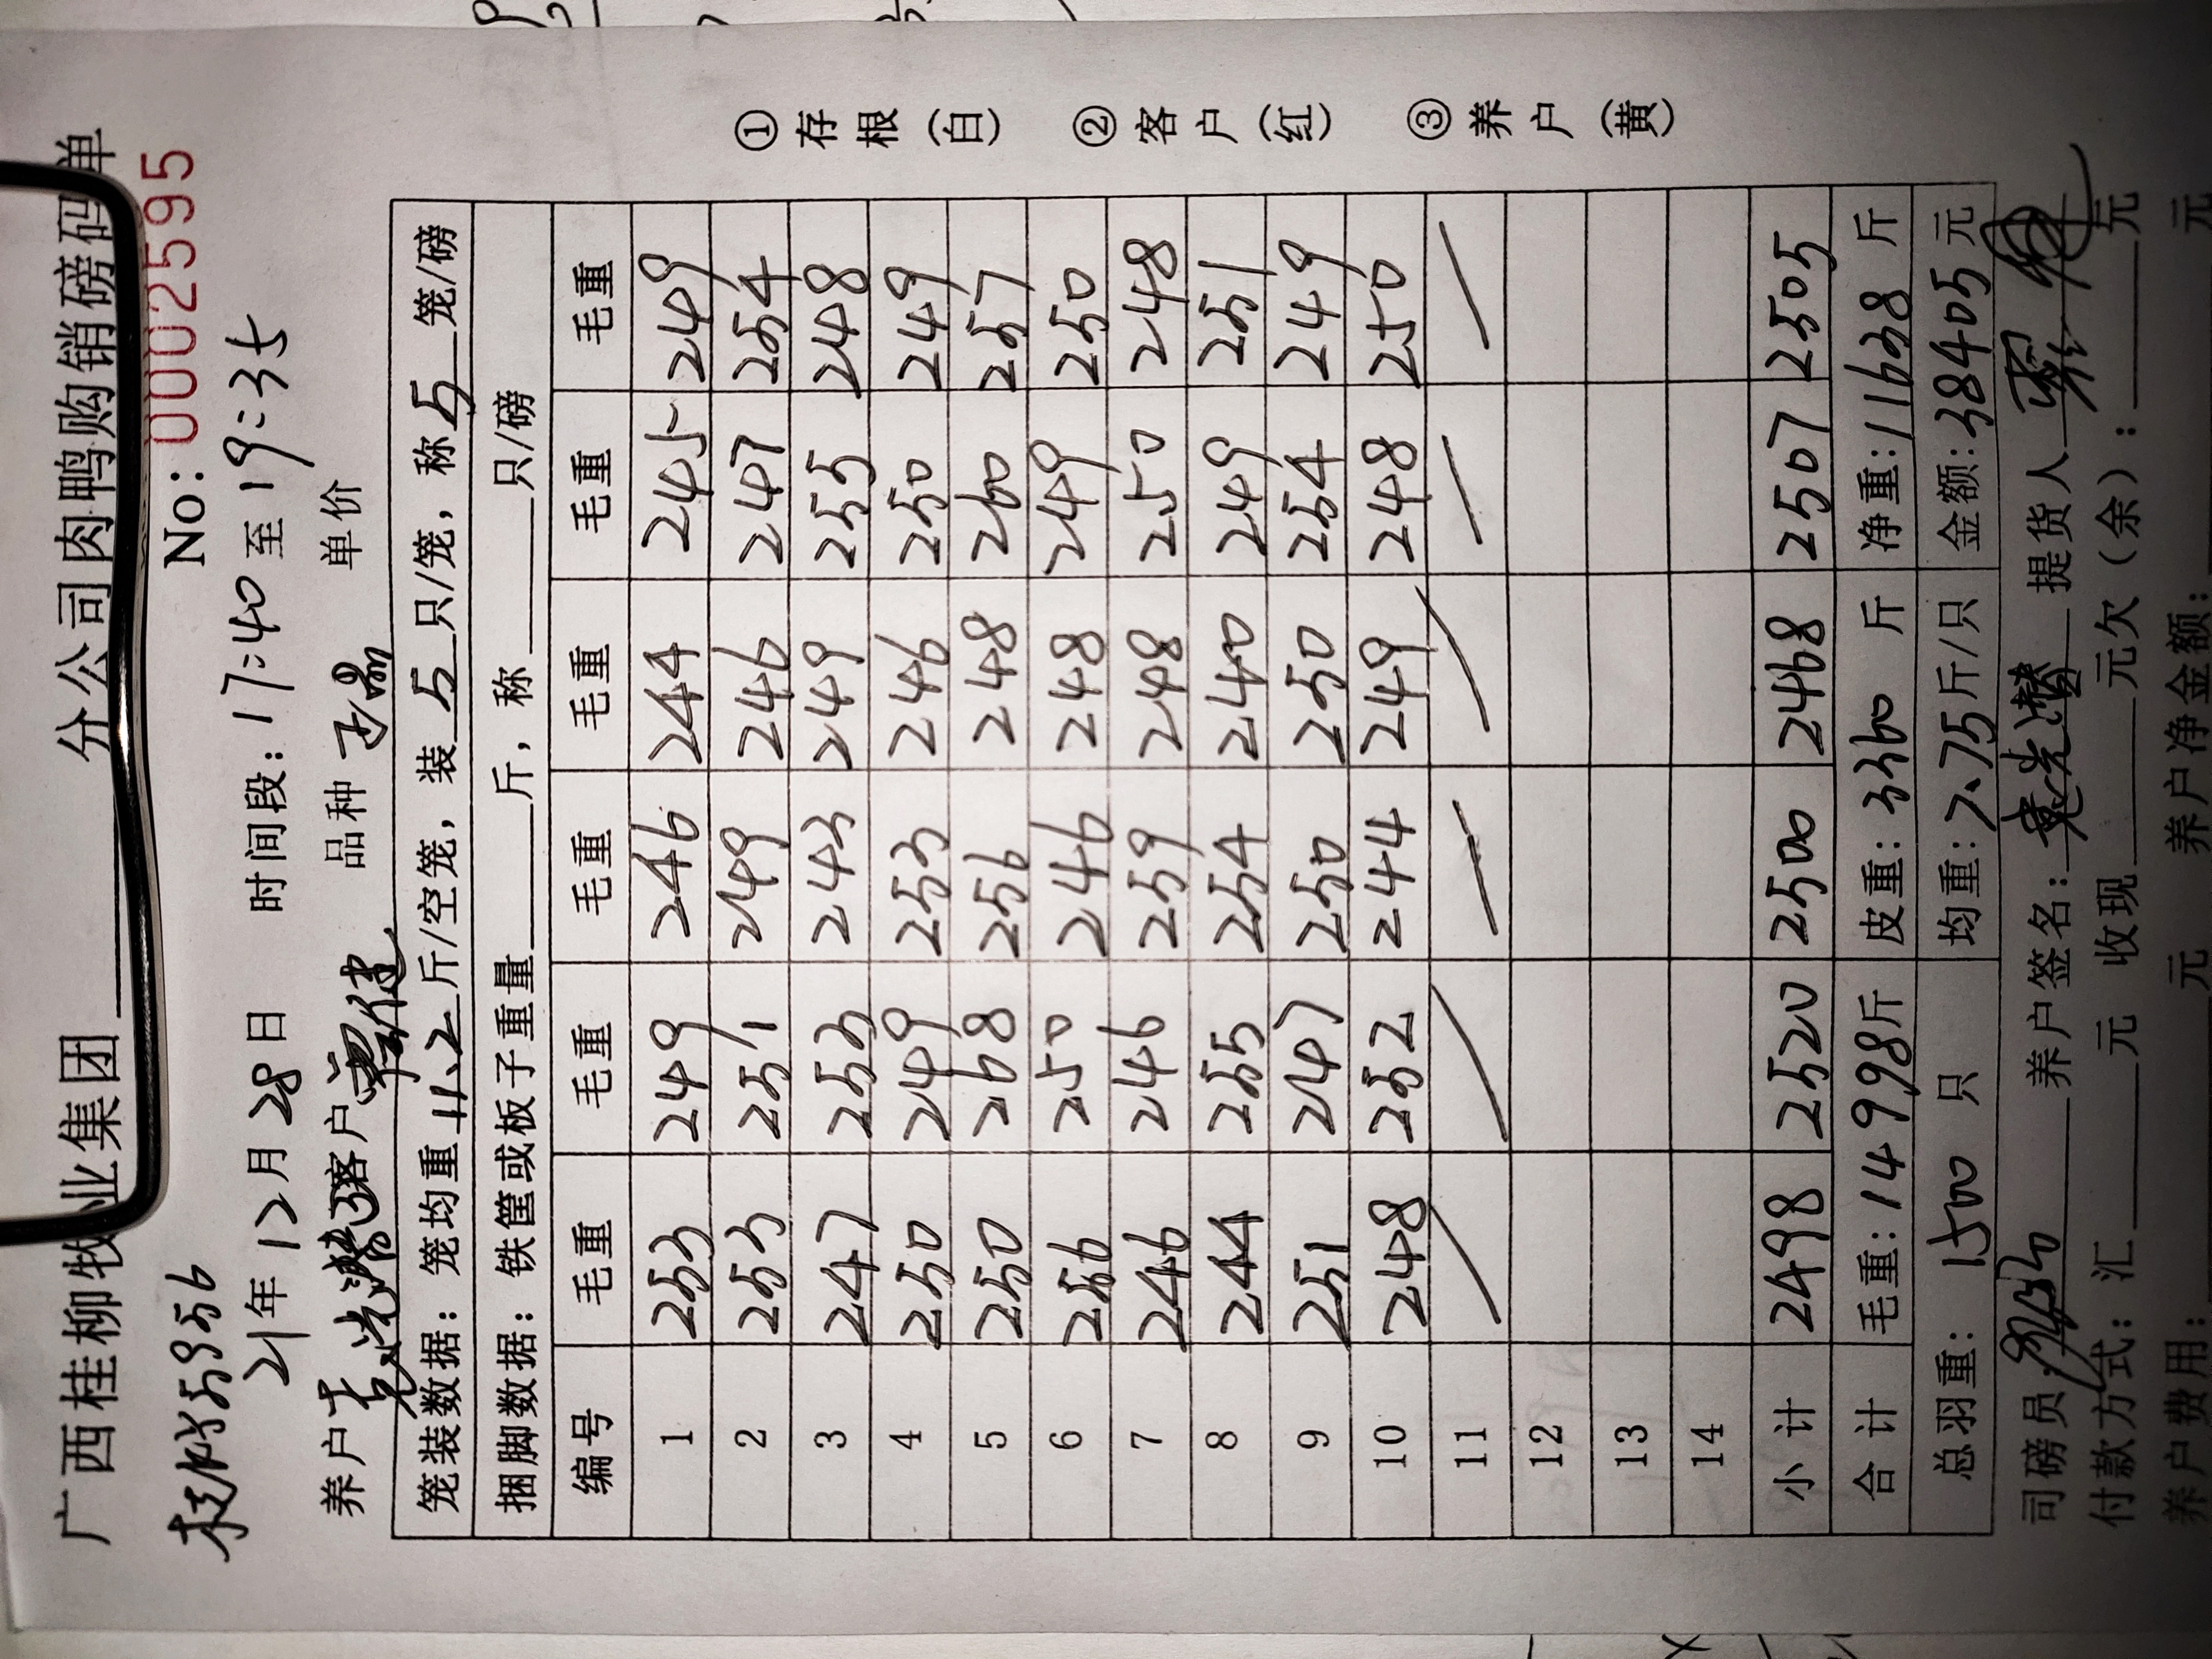 广西桂柳牧业集团 分公司肉鸭购销磅码单
No: 0002595
21年12月28日 时间段:17:40至19:35
养户 客户 品种 单价
笼装数据: 笼均重11.2斤/空笼, 装5只/笼, 称5笼/磅
捆脚数据: 铁筐或板子重量 斤, 称 只/磅
编号 毛重 毛重 毛重 毛重 毛重 毛重
1 253 249 246 244 245 249
2 253 251 249 246 247 254
3 247 253 243 249 255 248
4 250 249 253 246 250 249
5 250 268 256 248 260 257
6 256 250 246 248 249 250
7 246 246 259 248 250 248
8 244 255 254 240 249 251
9 251 247 250 250 254 249
10 248 252 244 249 248 250
11
12
13
14
小计 2498 2520 2500 2468 2507 2505
合计 毛重:14998斤 皮重:3360斤 净重:11638斤
总羽重: 1500只 均重:7.75斤/只 金额:38405元
司磅员: 养户签名: 提货人
付款方式: 汇 元 收现 元欠(余): 元
养户费用: 元 养户净金额: 元
①存根(白) ②客户(红) ③养户(黄)